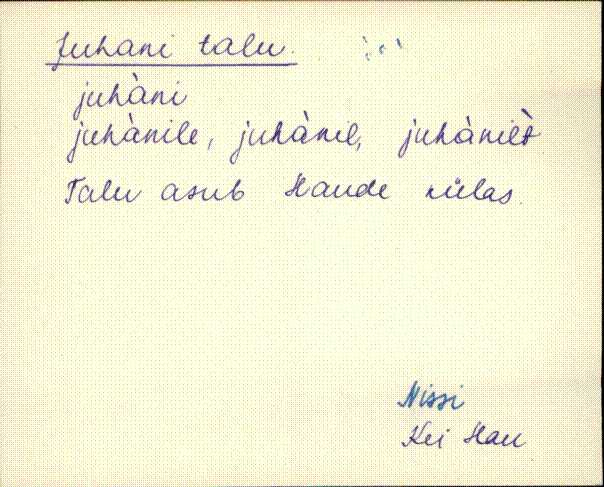 Juhani talu.
juhàni
juhànile, juhànil, juhànilt
Talu asub Haude külas.
Nissi
Kei Hau